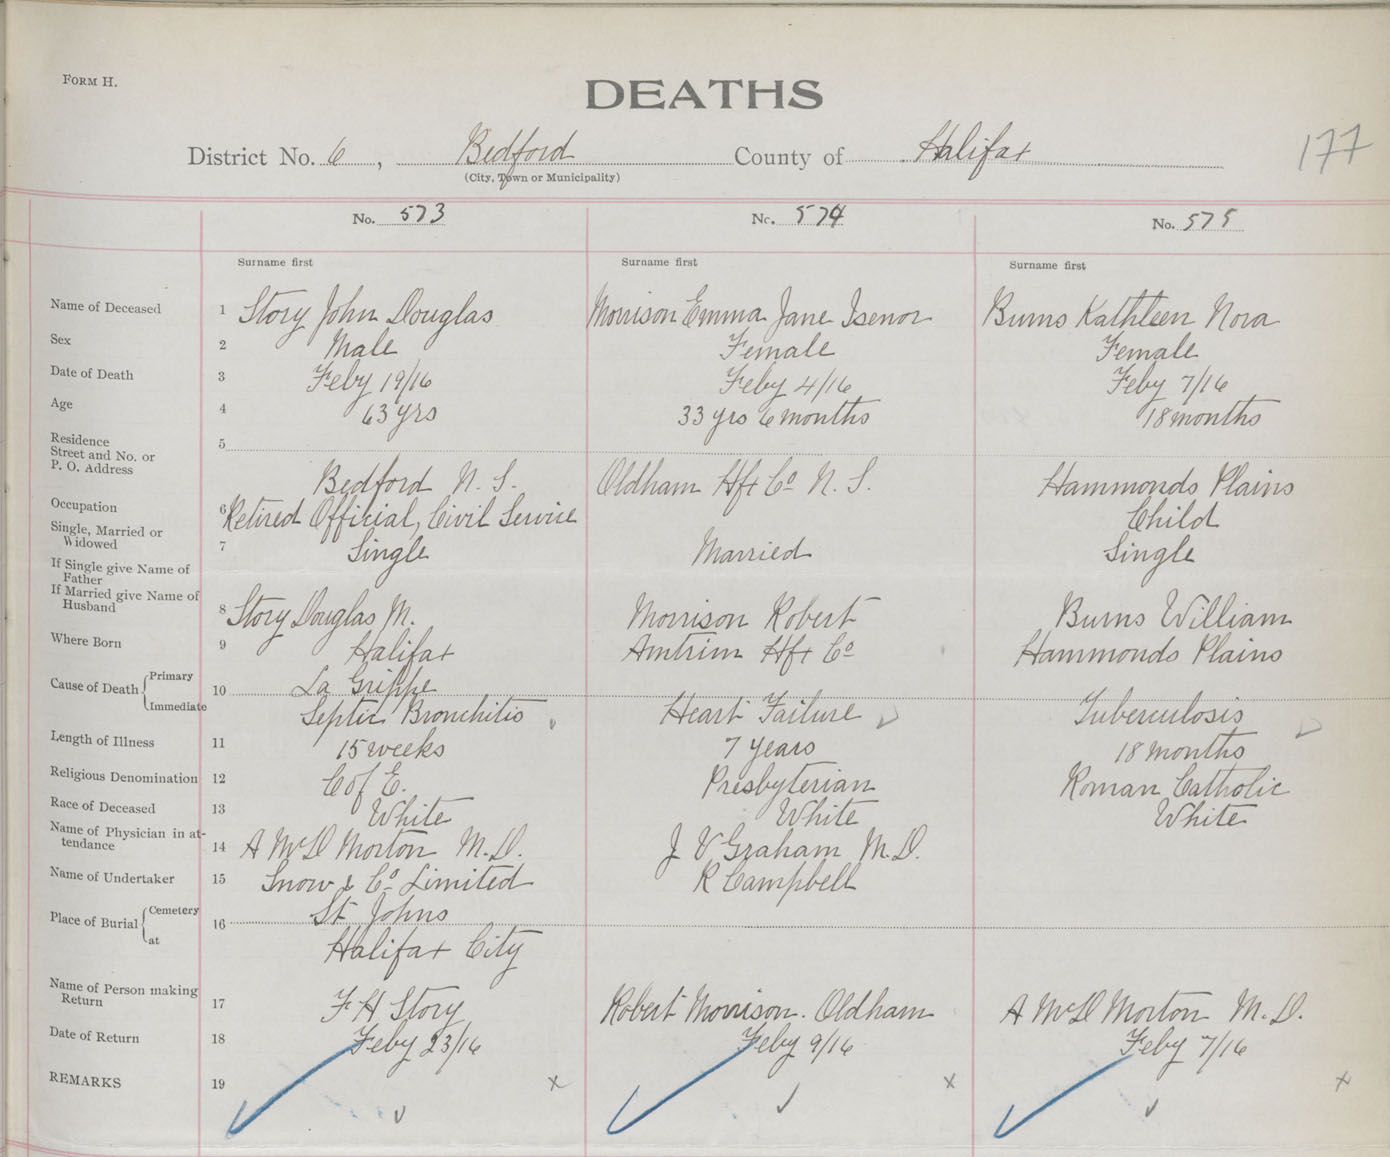 FORM H.
DEATHS
District No. 6, Bedford County of Halifax 177
(City, Town or Municipality)
No. 573 No. 574 No. 575
Surname first Surname first Surname first
Name of Deceased 1 Story John Douglas Morrison Emma Jane Isenor Burns Kathleen Nora
Sex 2 Male Female Female
Date of Death 3 Feby 19/16 Feby 4/16 Feby 7/16
Age 4 63 yrs 33 yrs 6 months 18 months
Residence 5
Street and No. or
P. O. Address
Bedford N. S. Oldham Hfx Co N. S. Hammonds Plains
Occupation 6 Retired Official, Civil Service Child
Single, Married or
Widowed 7 Single Married Single
If Single give Name of
Father
If Married give Name of
Husband 8 Story Douglas M. Morrison Robert Burns William
Where Born 9 Halifax Antrim Hfx Co Hammonds Plains
Cause of Death Primary 10 La Grippe
Immediate Septic Bronchitis Heart Failure Tuberculosis
Length of Illness 11 15 weeks 7 years 18 months
Religious Denomination 12 C of E. Presbyterian Roman Catholic
Race of Deceased 13 White White White
Name of Physician in at-
tendance 14 A McD Morton M.D. J V Graham M.D.
Name of Undertaker 15 Snow & Co Limited R Campbell
Place of Burial Cemetery 16 St Johns
at Halifax City
Name of Person making
Return 17 F H Story Robert Morrison. Oldham A McD Morton M.D.
Date of Return 18 Feby 23/16 Feby 9/16 Feby 7/16
REMARKS 19 x x x